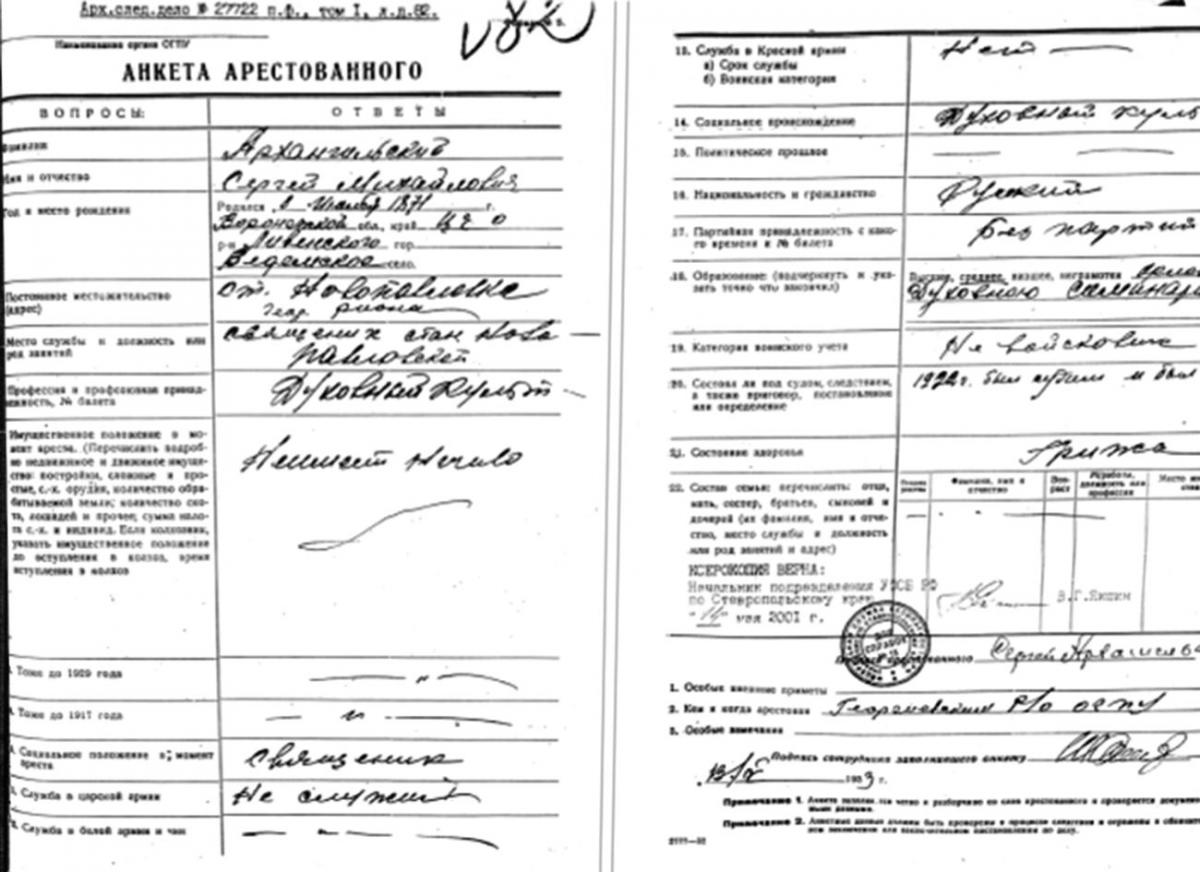 Арх.след.дело № 27722 п.ф., том I, л.д.82.
Наименование органа ОГПУ
АНКЕТА АРЕСТОВАННОГО
ВОПРОСЫ: ОТВЕТЫ
Фамилия Архангельский
Имя и отчество Сергей Михайлович
Год и место рождения Родился 1871 г.
Воронежской обл., край ЦЧО
р-н Ливенского гор.
село.
Постоянное местожительство (адрес) ст. Новопавловке
Геор. района
Место службы и должность или род занятий священник стан Ново-
Павловской
Профессия и профсоюзная принадлежность, № билета Духовный культ
Имущественное положение в мо-
мент ареста. (Перечислить подроб-
но недвижимое и движимое имуще-
ство: постройки, сложные и про-
стые, с.-х. орудия, количество обра-
батываемой земли; количество ско-
та, лошадей и прочее; сумма нало-
га с.-х. и индивид. Если колхозник,
указать имущественное положение
до вступления в колхоз, время
вступления в колхоз
Неимеет Ничего
Тоже до 1929 года — " —
Тоже до 1917 года — " —
Социальное положение в момент ареста Священник
Служба в царской армии Не служил
Служба в белой армии и чин — " —
13. Служба в Красной армии Нет —
а) Срок службы
б) Воинская категория
14. Социальное происхождение Духовный куль
15. Политическое прошлое — —
16. Национальность и гражданство Русский
17. Партийная принадлежность с како-
го времени и № билета Без партий
18. Образование (подчеркнуть и ука-
зать точно что закончил) Высшее, среднее, низшее, неграмотен
Духовною Семинар
19. Категория воинского учета Не войсковик
20. Состоял ли под судом, следствием,
а также приговор, постановление
или определение 1922 г. был судим и был
21. Состояние здоровья Грижа
22. Состав семьи: перечислить: отца,
мать, сестер, братьев, сыновей и
дочерей (их фамилия, имя и отче-
ство, место службы и должность
или род занятий и адрес)
Фамилия, имя и отчество Воз-раст должность или профессия
КСЕРОКОПИЯ ВЕРНА:
Начальник подразделения УФСБ РФ
по Ставропольскому краю В.Г.Яишин
"14" мая 2001 г.
СПРАВОК
Подпись арестованного Сергей
1. Особые внешние приметы
2. Кем и когда арестован Георгиевским Р/о ОГПУ
3. Особые замечания
Подпись сотрудника заполнявшего анкету
1933 г.
Примечание 1. Анкета заполняется четко и разборчиво со слов арестованного и проверяется
Примечание 2. Анкетные данные должны быть проверены в процессе следствия и отражены в